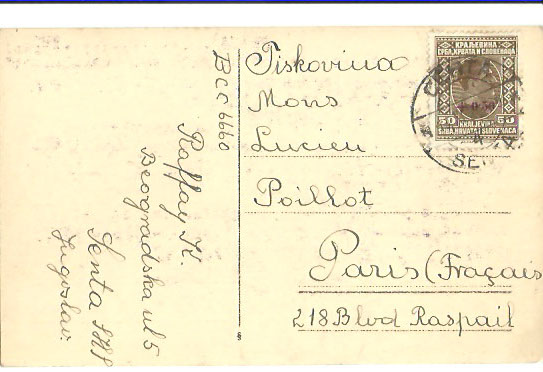 BCC 6660
Raffay K.
Beogradska ul 5
Senta SHS
Jugoslav.
Tiskovina
Mons
Lucien
Poillot
Paris (Fraçais
218 Blvd Raspail
КРАЉЕВИНА
СРБА, ХРВАТА И СЛОВЕНАЦА
50 KRALJEVINA 50
SRBA, HRVATA I SLOVENACA
СЕНТА
SEN